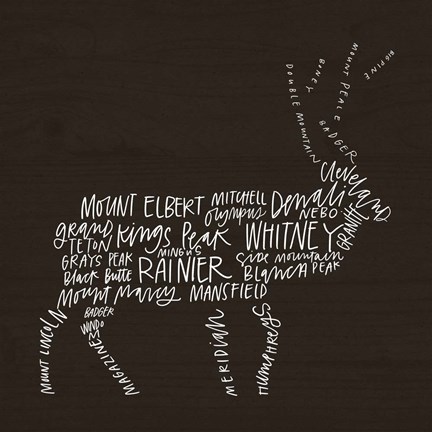 BIG PINE
MOUNT PEALE
BONEY
DOUBLE MOUNTAIN
BADGER
Cleveland
MOUNT ELBERT
MITCHELL
Denali
olympus
NEBO
GRANITE
grand
TETON
Kings Peak
WHITNEY
MINGUS
GRAYS PEAK
RAINIER
mountain
Black Butte
BLANCA PEAK
Mount Marcy
MANSFIELD
MOUNT LINCOLN
BADGER
WINDOM
MAGAZINE
MERIDIAN
HUMPHREYS